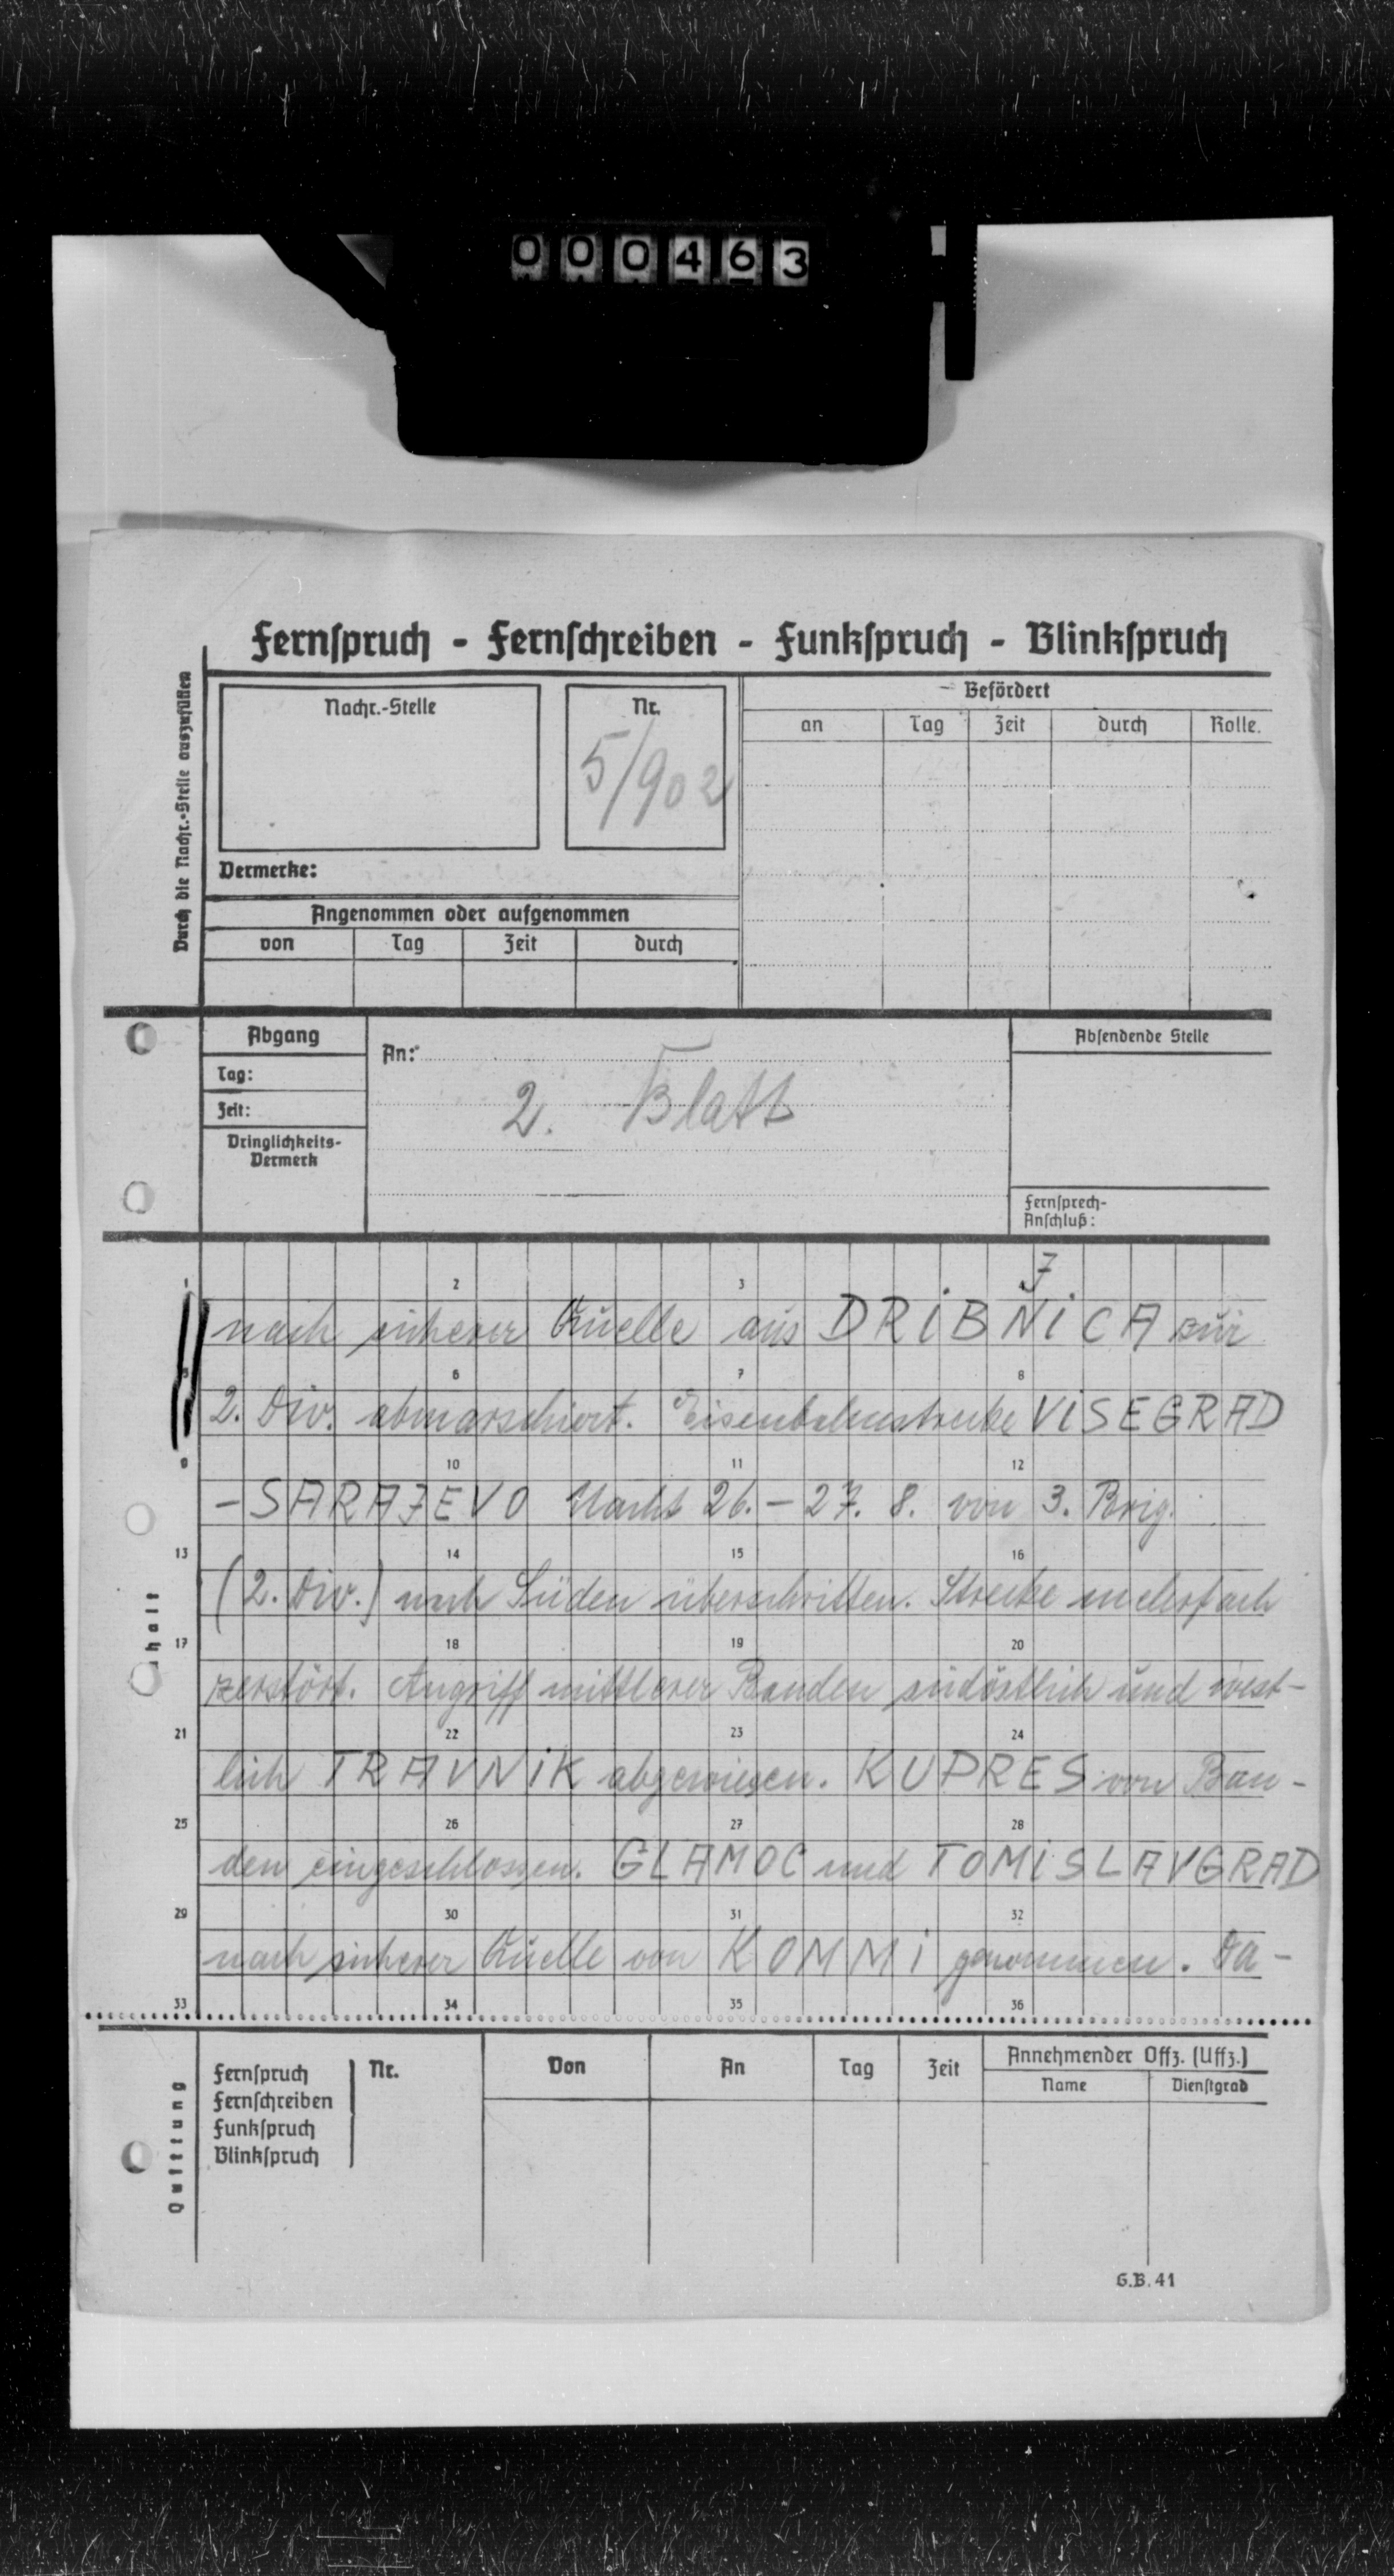 000463
Fernspruch - Fernschreiben - Funkspruch - Blinkspruch
Durch die Nachr.-Stelle auszufüllen
Nachr.-Stelle
Nr.
5/902
Befördert
an Tag Zeit durch Rolle.
Vermerke:
Angenommen oder aufgenommen
von Tag Zeit durch
Abgang
Tag:
Zeit:
Dringlichkeits-
Vermerk
An:
2. Blatt
Absendende Stelle
Fernsprech-
Anschluß:
J
1 2 3
nach sicherer Quelle aus DRIBNICA zur
5 6 7 8
2. Div. abmarschiert. Eisenbahnstrecke VISEGRAD
9 10 11 12
- SARAJEVO Nacht 26. - 27. 8. von 3. Brig.
13 14 15 16
(2. Div.) nach Süden überschritten. Strecke mehrfach
17 18 19 20
zerstört. Angriff mittlerer Banden südöstlich und west-
21 22 23 24
lich TRAVNIK abgewiesen. KUPRES von Ban-
25 26 27 28
den eingeschlossen. GLAMOC und TOMISLAVGRAD
29 30 31 32
nach sicherer Quelle von KOMMI genommen. Da-
33 34 35 36
halt
Quittung
Fernspruch
Fernschreiben
Funkspruch
Blinkspruch
Nr.
Von An Tag Zeit
Annehmender Offz. (Uffz.)
Name Dienstgrad
G.B. 41